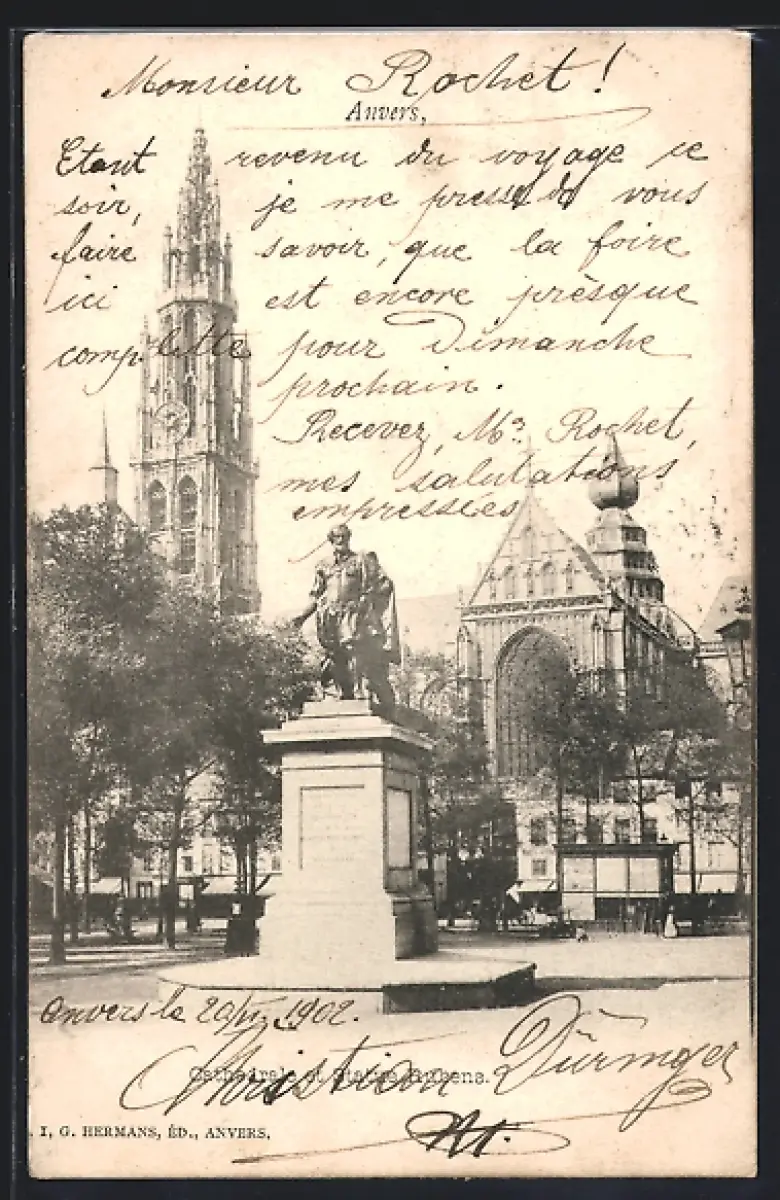 Monsieur Rochet!
Anvers,
Etant revenu du voyage ce
soir, je me presse de vous
faire savoir, que la foire
ici est encore prèsque
complette pour Dimanche
prochain.
Recevez, Mr. Rochet,
mes salutations
empressées
Anvers le 20/ 1902.
Cathédrale et Statue Rubens.
Christian Düringer
I, G. HERMANS, ÉD., ANVERS.